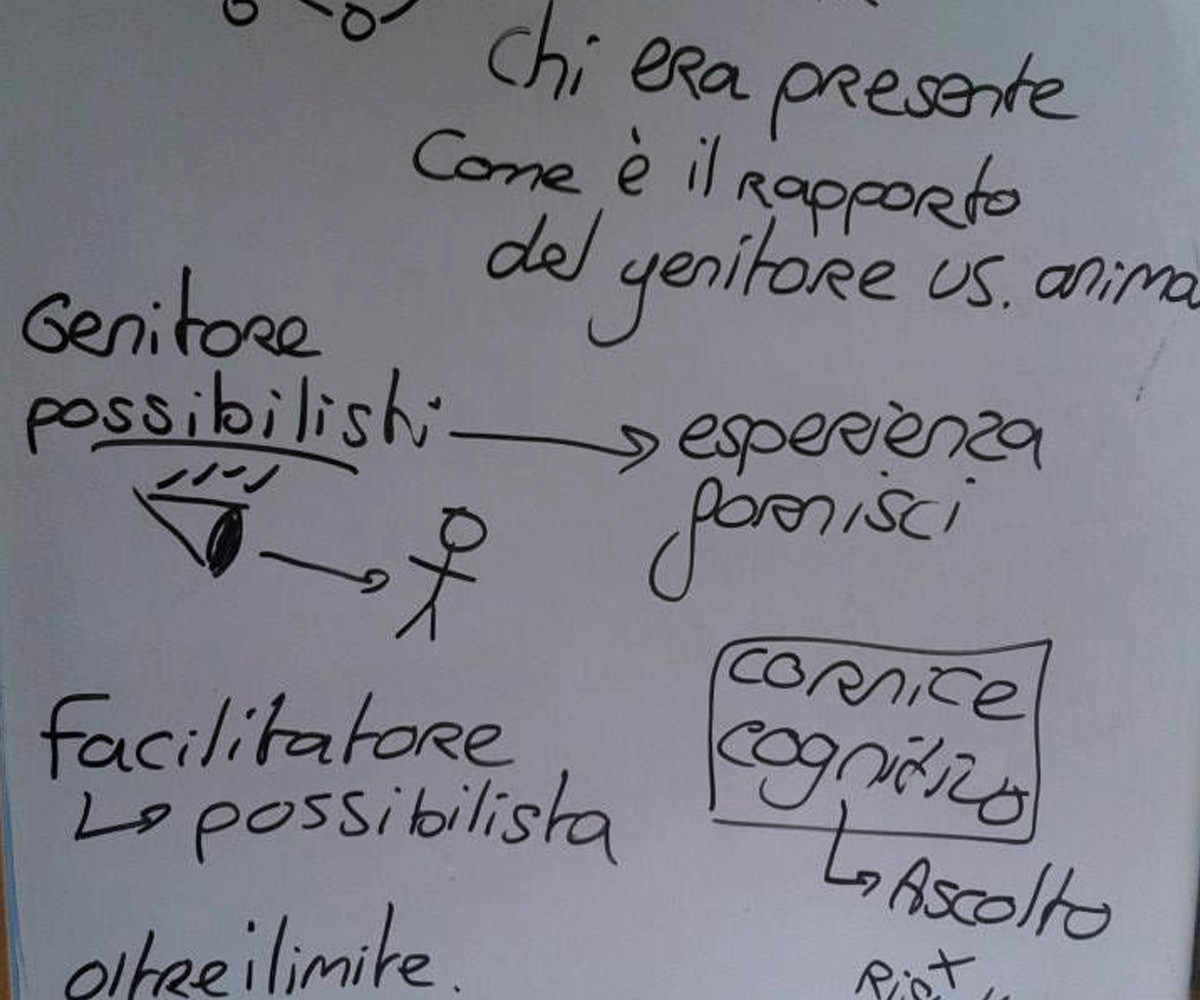 Chi era presente
Come è il rapporto
del genitore vs. anima
Genitore
possibilisti
esperienza
fornisci
cornice
cognitivo
Facilitatore
possibilista
Ascolto
oltre il limite.